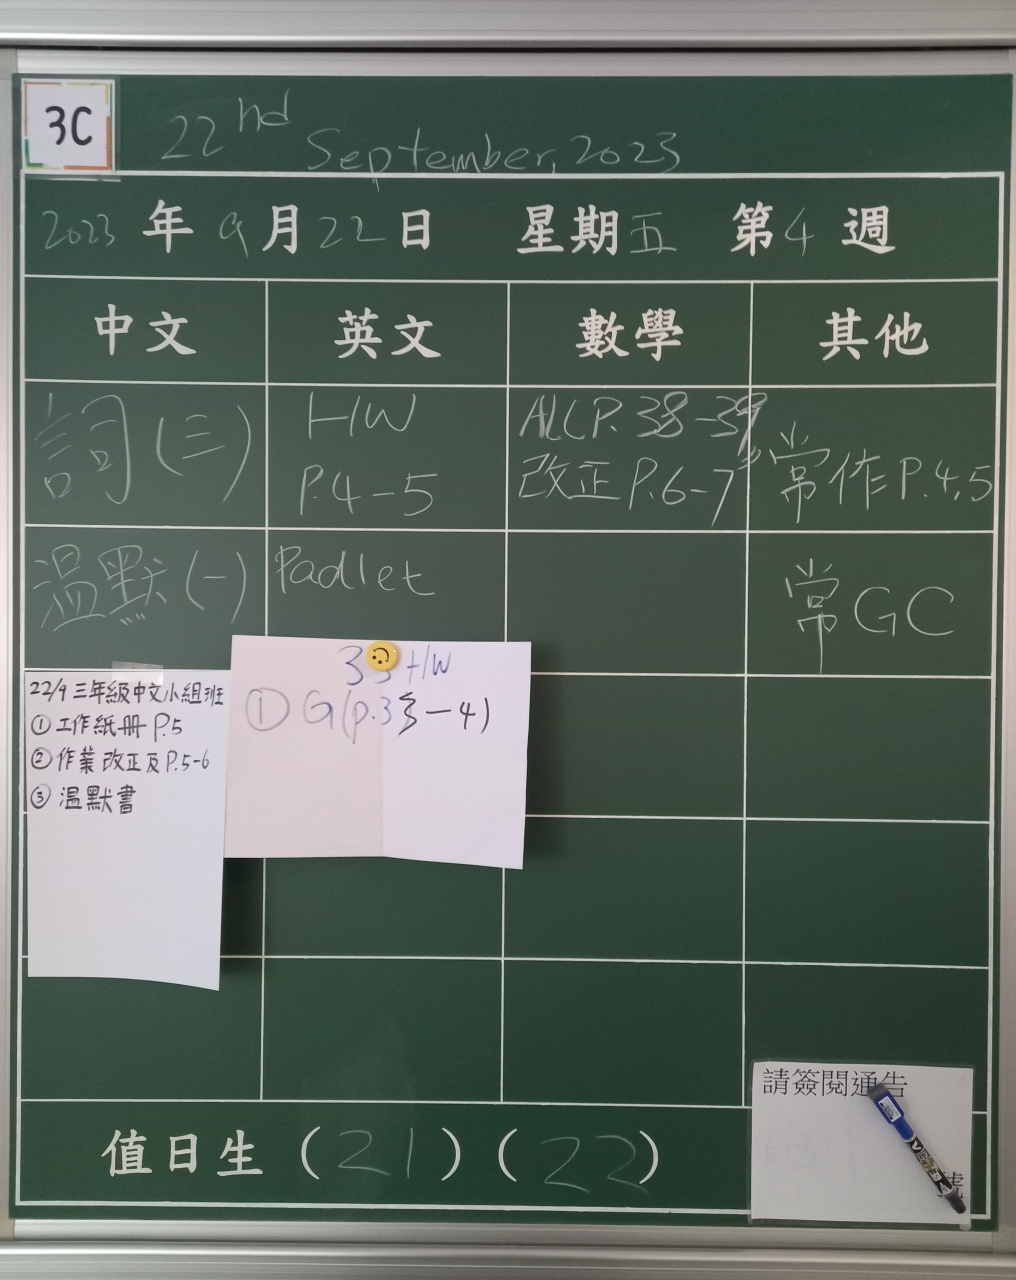 3C
22nd September, 2023
2023 年 9 月 22 日 星期 五 第 4 週
中文 英文 數學 其他
詞(三)
HW
P.4-5
ALC P. 38-39,
改正 P.6-7
常作 P.4,5
温默(一)
Padlet
常 GC
22/9 三年級中文小組班
① 工作紙册 P.5
② 作業 改正及 P.5-6
③ 温默書
HW
① G(p.3-4)
請簽閱通告
號
值日生 (21) (22)